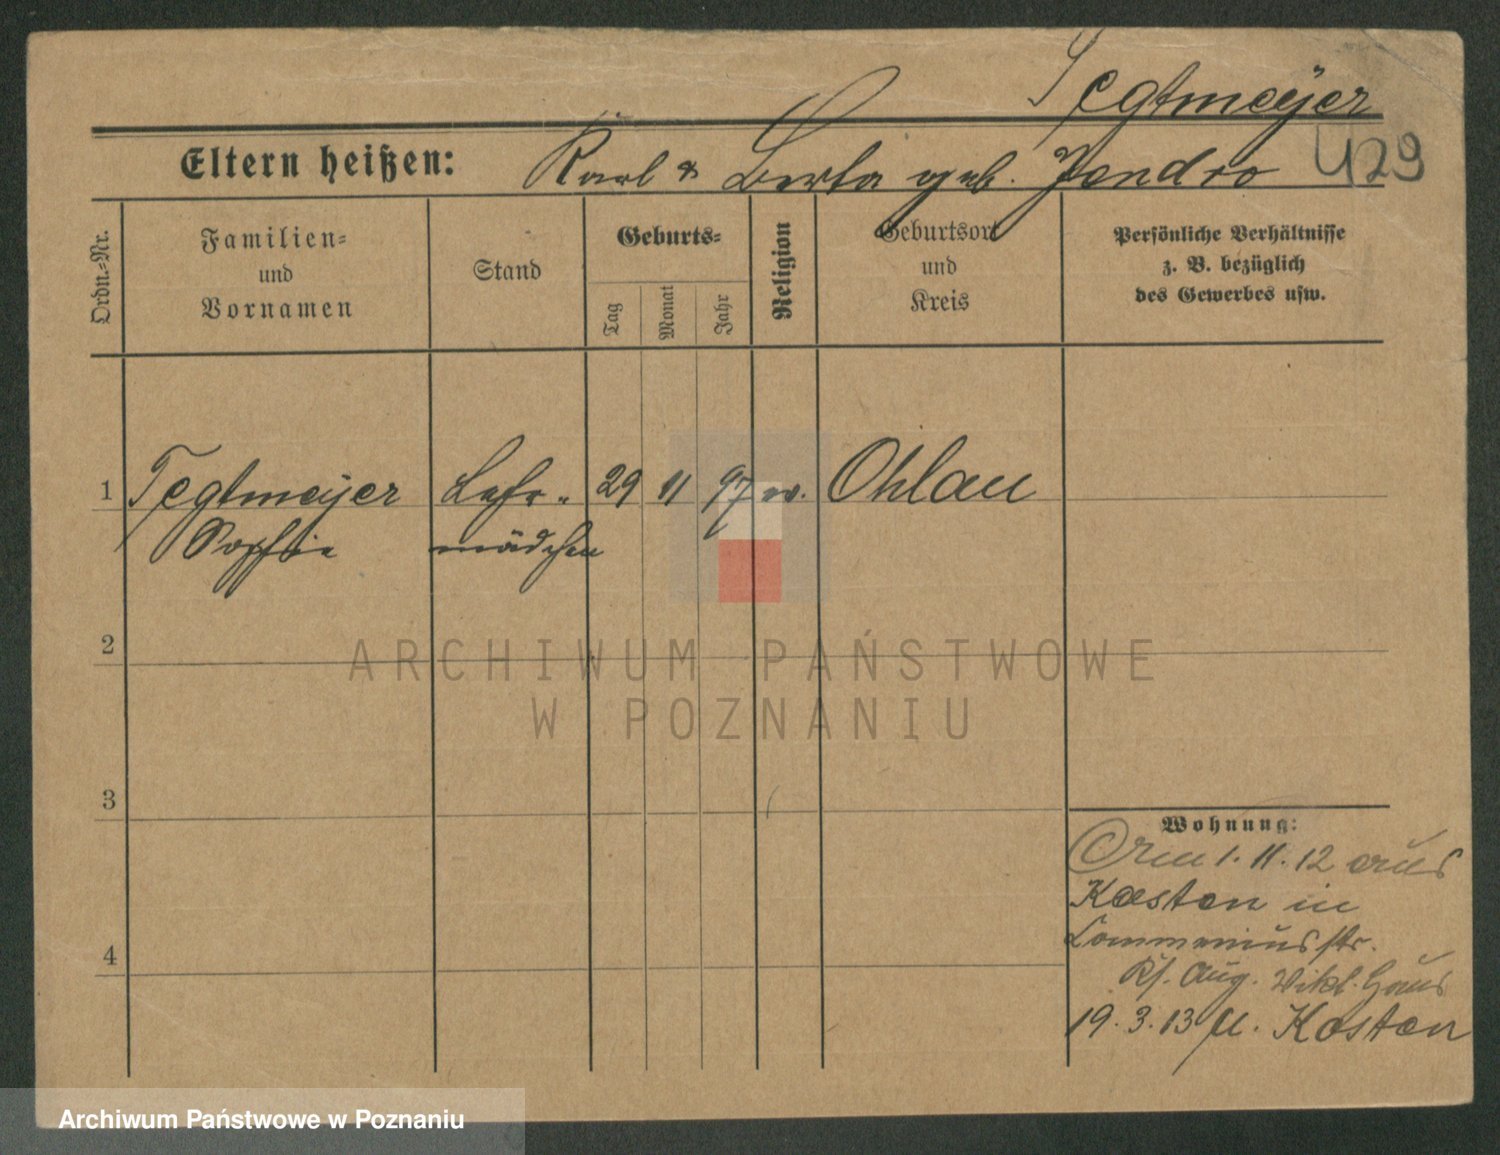 Tegtmeyer
Eltern heißen: Karl & Berta geb. Jendro 429
Ordn.-Nr.
Familien-
und
Vornamen
Stand
Geburts-
Tag
Monat
Jahr
Religion
Geburtsort
und
Kreis
Persönliche Verhältnisse
z. B. bezüglich
des Gewerbes usw.
1 Tegtmeyer Lehr- 29 11 97 ev. Ohlau
Sophie mädchen
2
3
4
Wohnung:
Am 1. 11. 12 aus
Kosten in
Commeniusstr.
Ks. Aug. Vikt. Haus
19. 3. 13 n. Kosten
ARCHIWUM PAŃSTWOWE
W POZNANIU
Archiwum Państwowe w Poznaniu